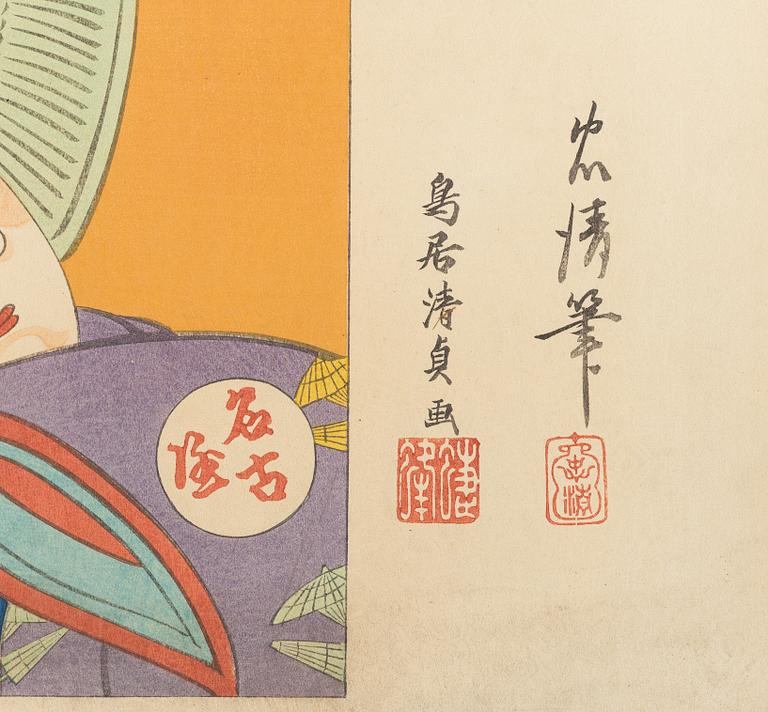 忠清筆
鳥居清貞画
忠清
名古屋